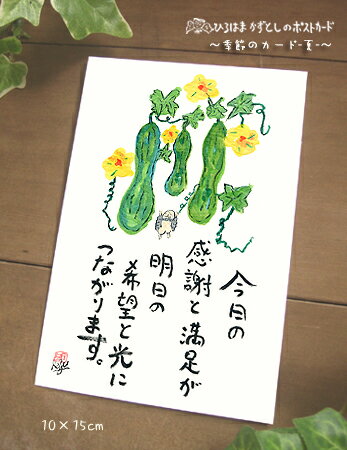 ひろはまかずとしのポストカード
～季節のカード-夏-～
今日の
感謝と満足が
明日の
希望と光に
つながります。
10×15cm